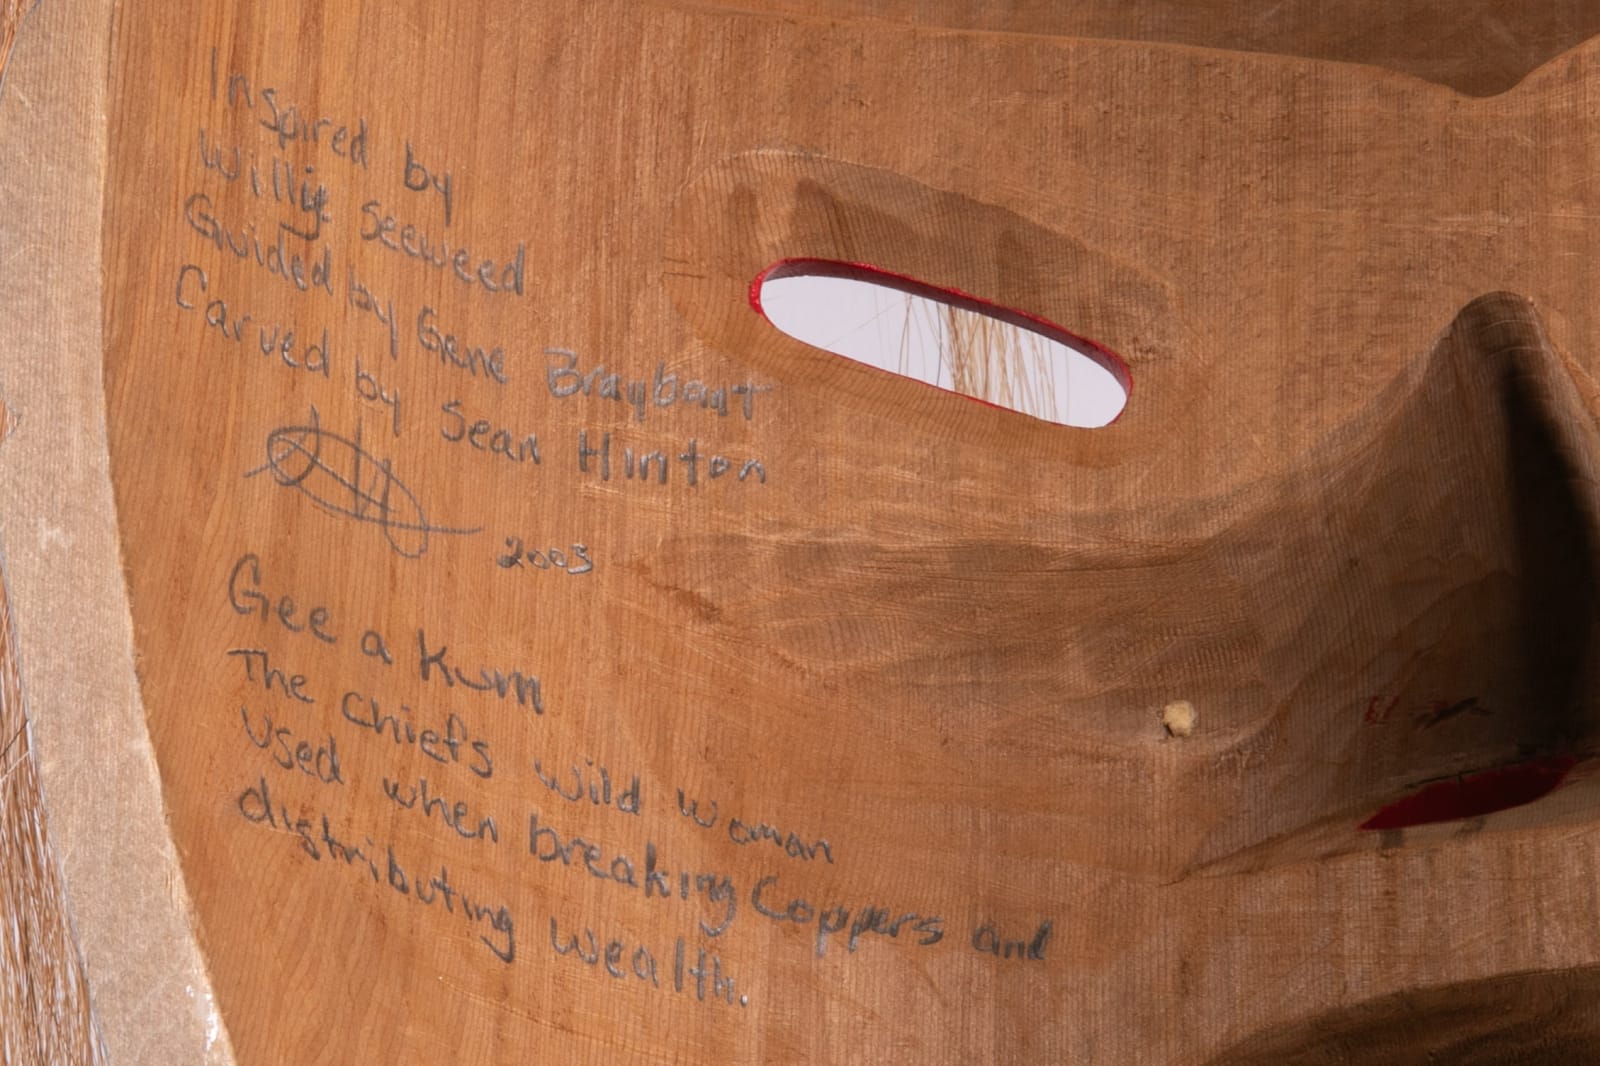 Inspired by
Willie Seeweed
Guided by Gene Braybant
Carved by Sean Hinton
2003
Gee a Kum
The chiefs wild woman
Used when breaking Coppers and
distributing wealth.